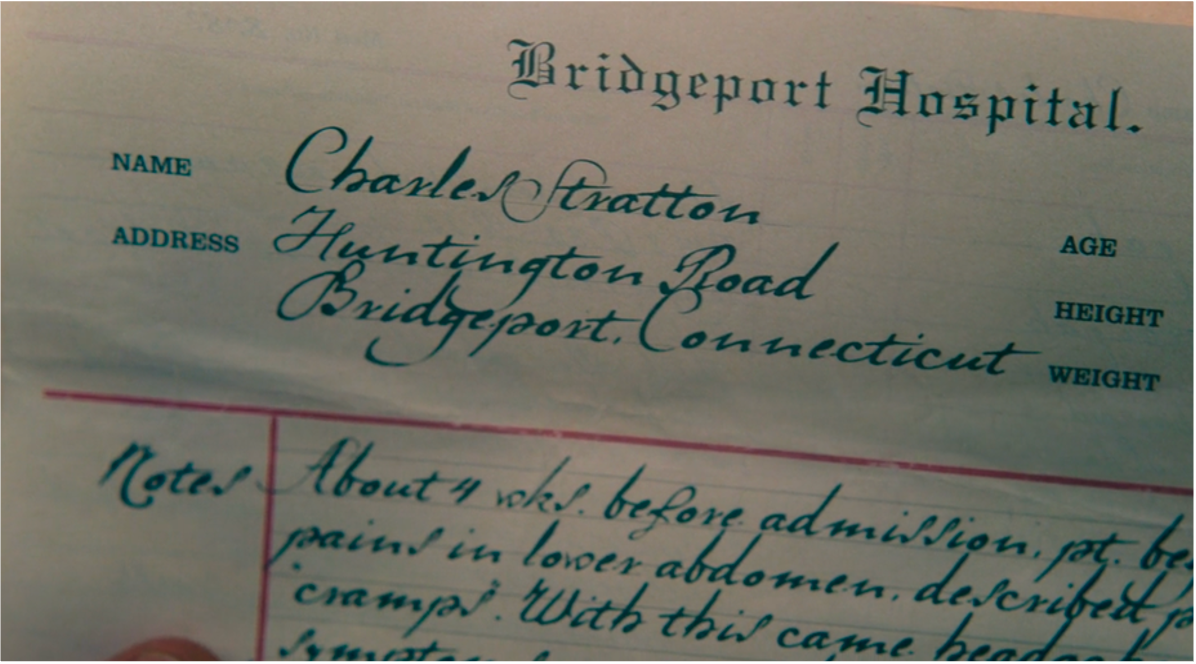 Bridgeport Hospital.
NAME Charles Stratton
ADDRESS Huntington Road
Bridgeport, Connecticut
AGE
HEIGHT
WEIGHT
Notes About 4 wks. before admission, pt.
pains in lower abdomen, described
"cramps". With this came